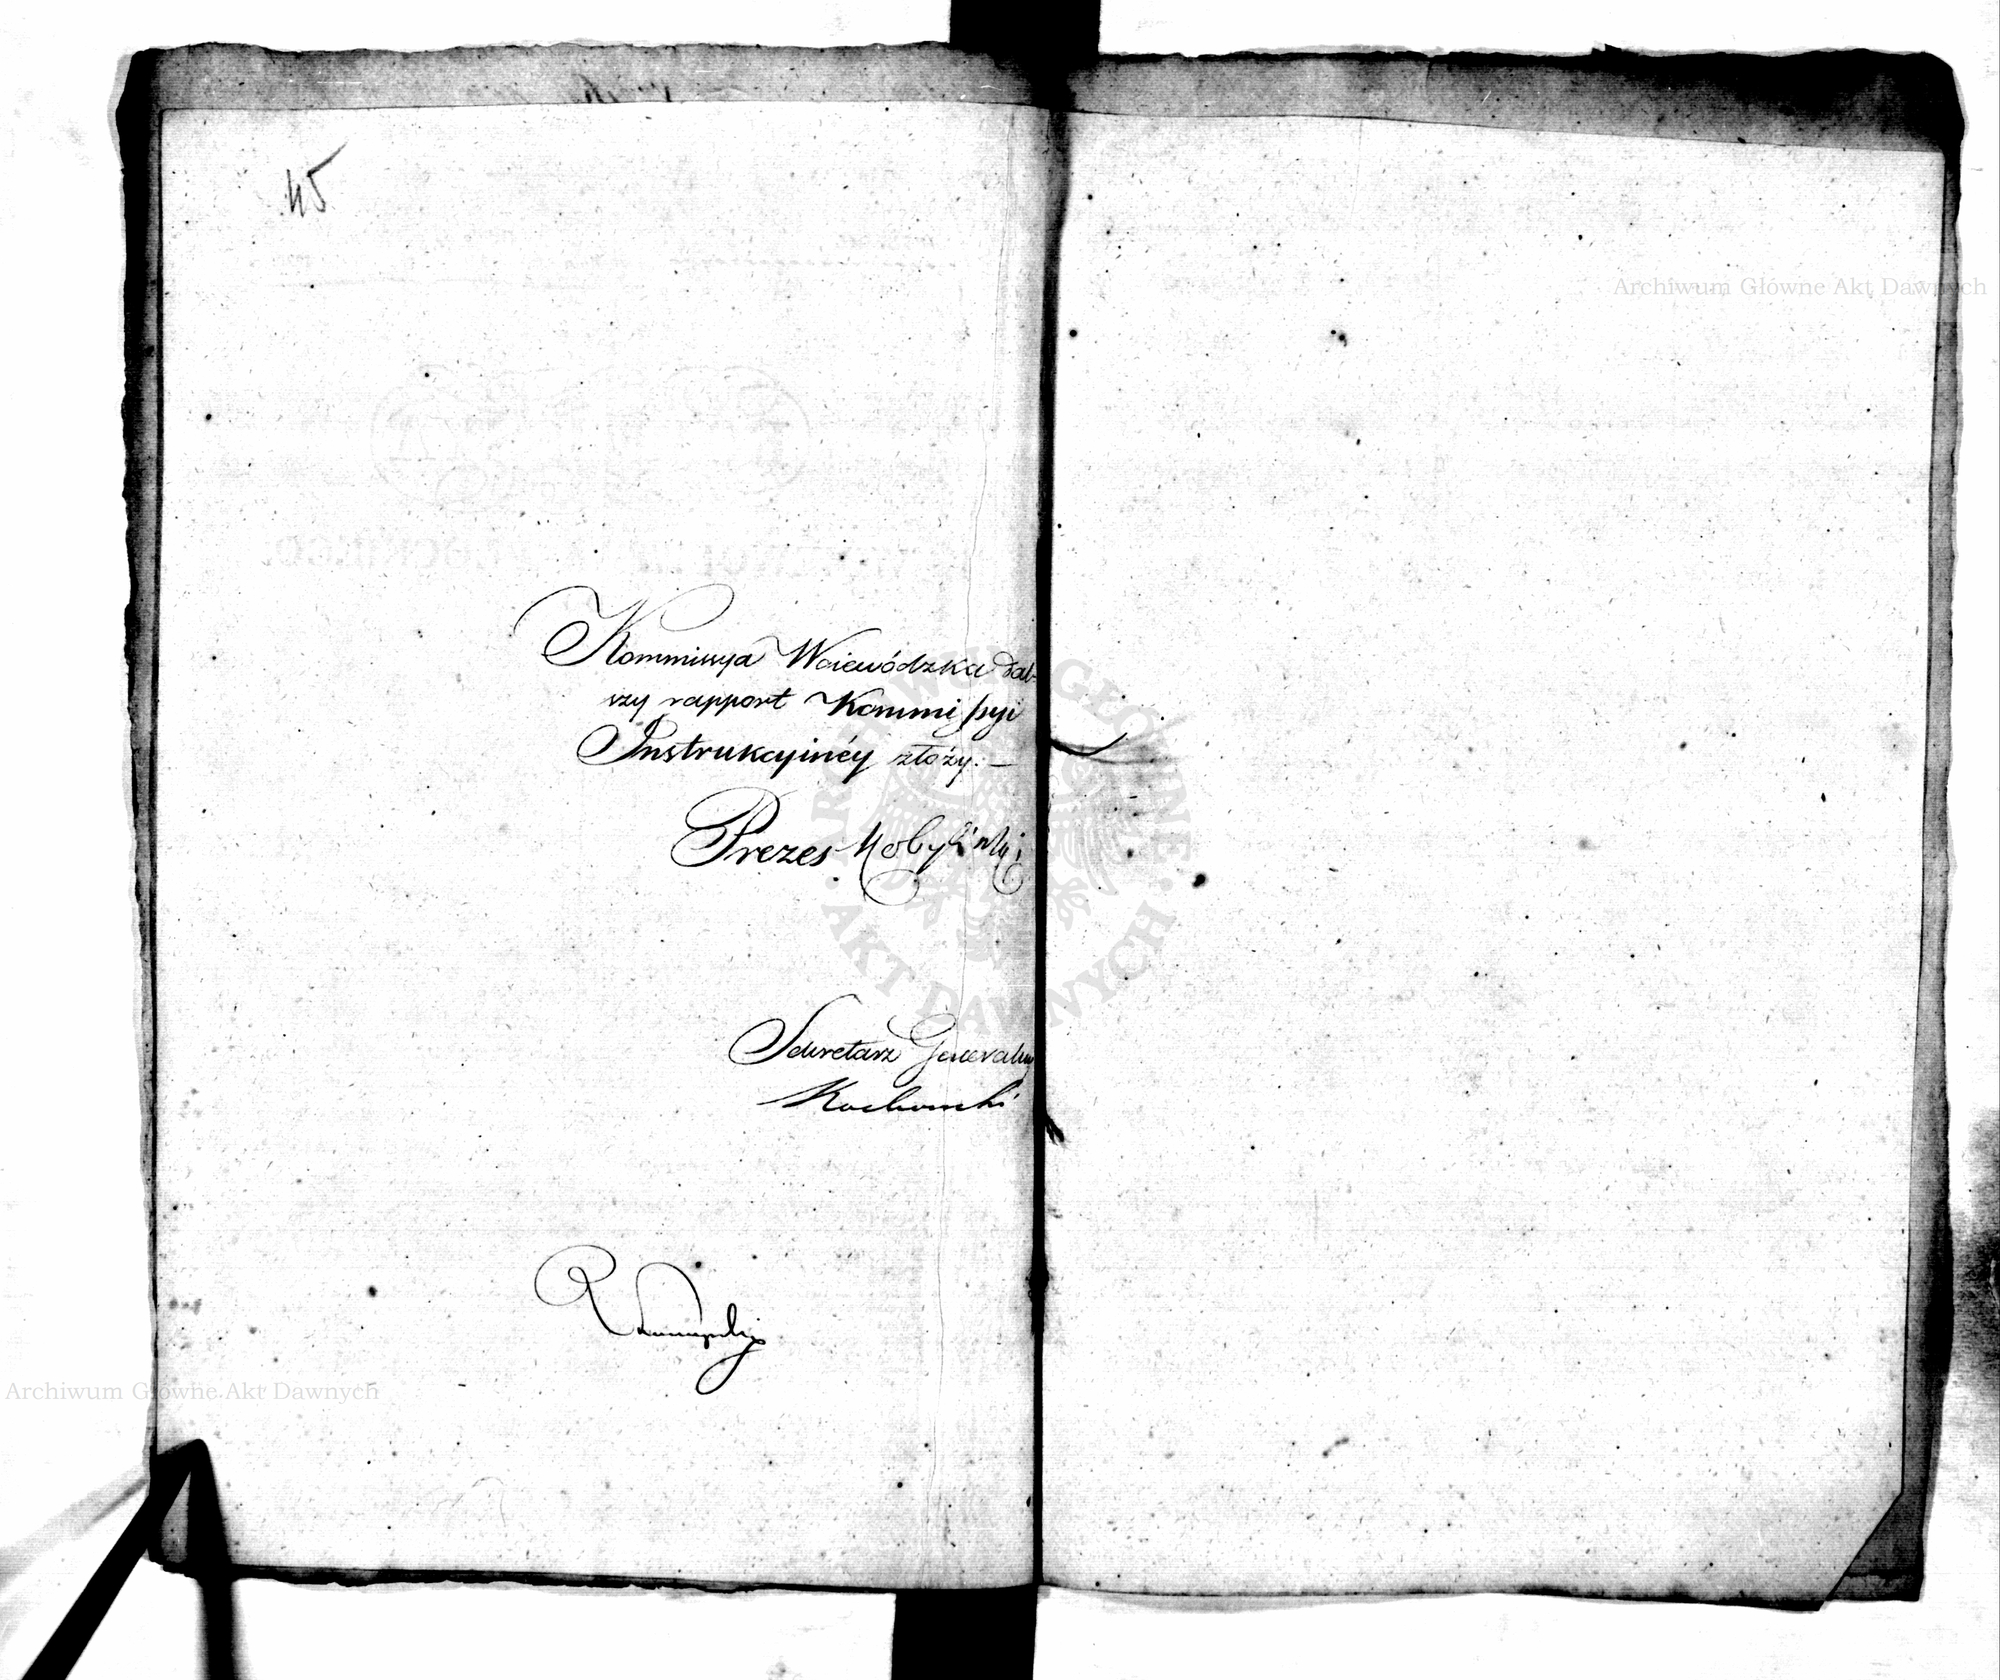 45
Kommissya Woiewódzka dal-
szy rapport Kommissyi
Instrukcyinéy złoży. —
Prezes Kobyliński
Sekretarz Generalny
Kochowski
Archiwum Główne Akt Dawnych
Archiwum Główne Akt Dawnych
ARCHIWUM GŁÓWNE AKT DAWNYCH